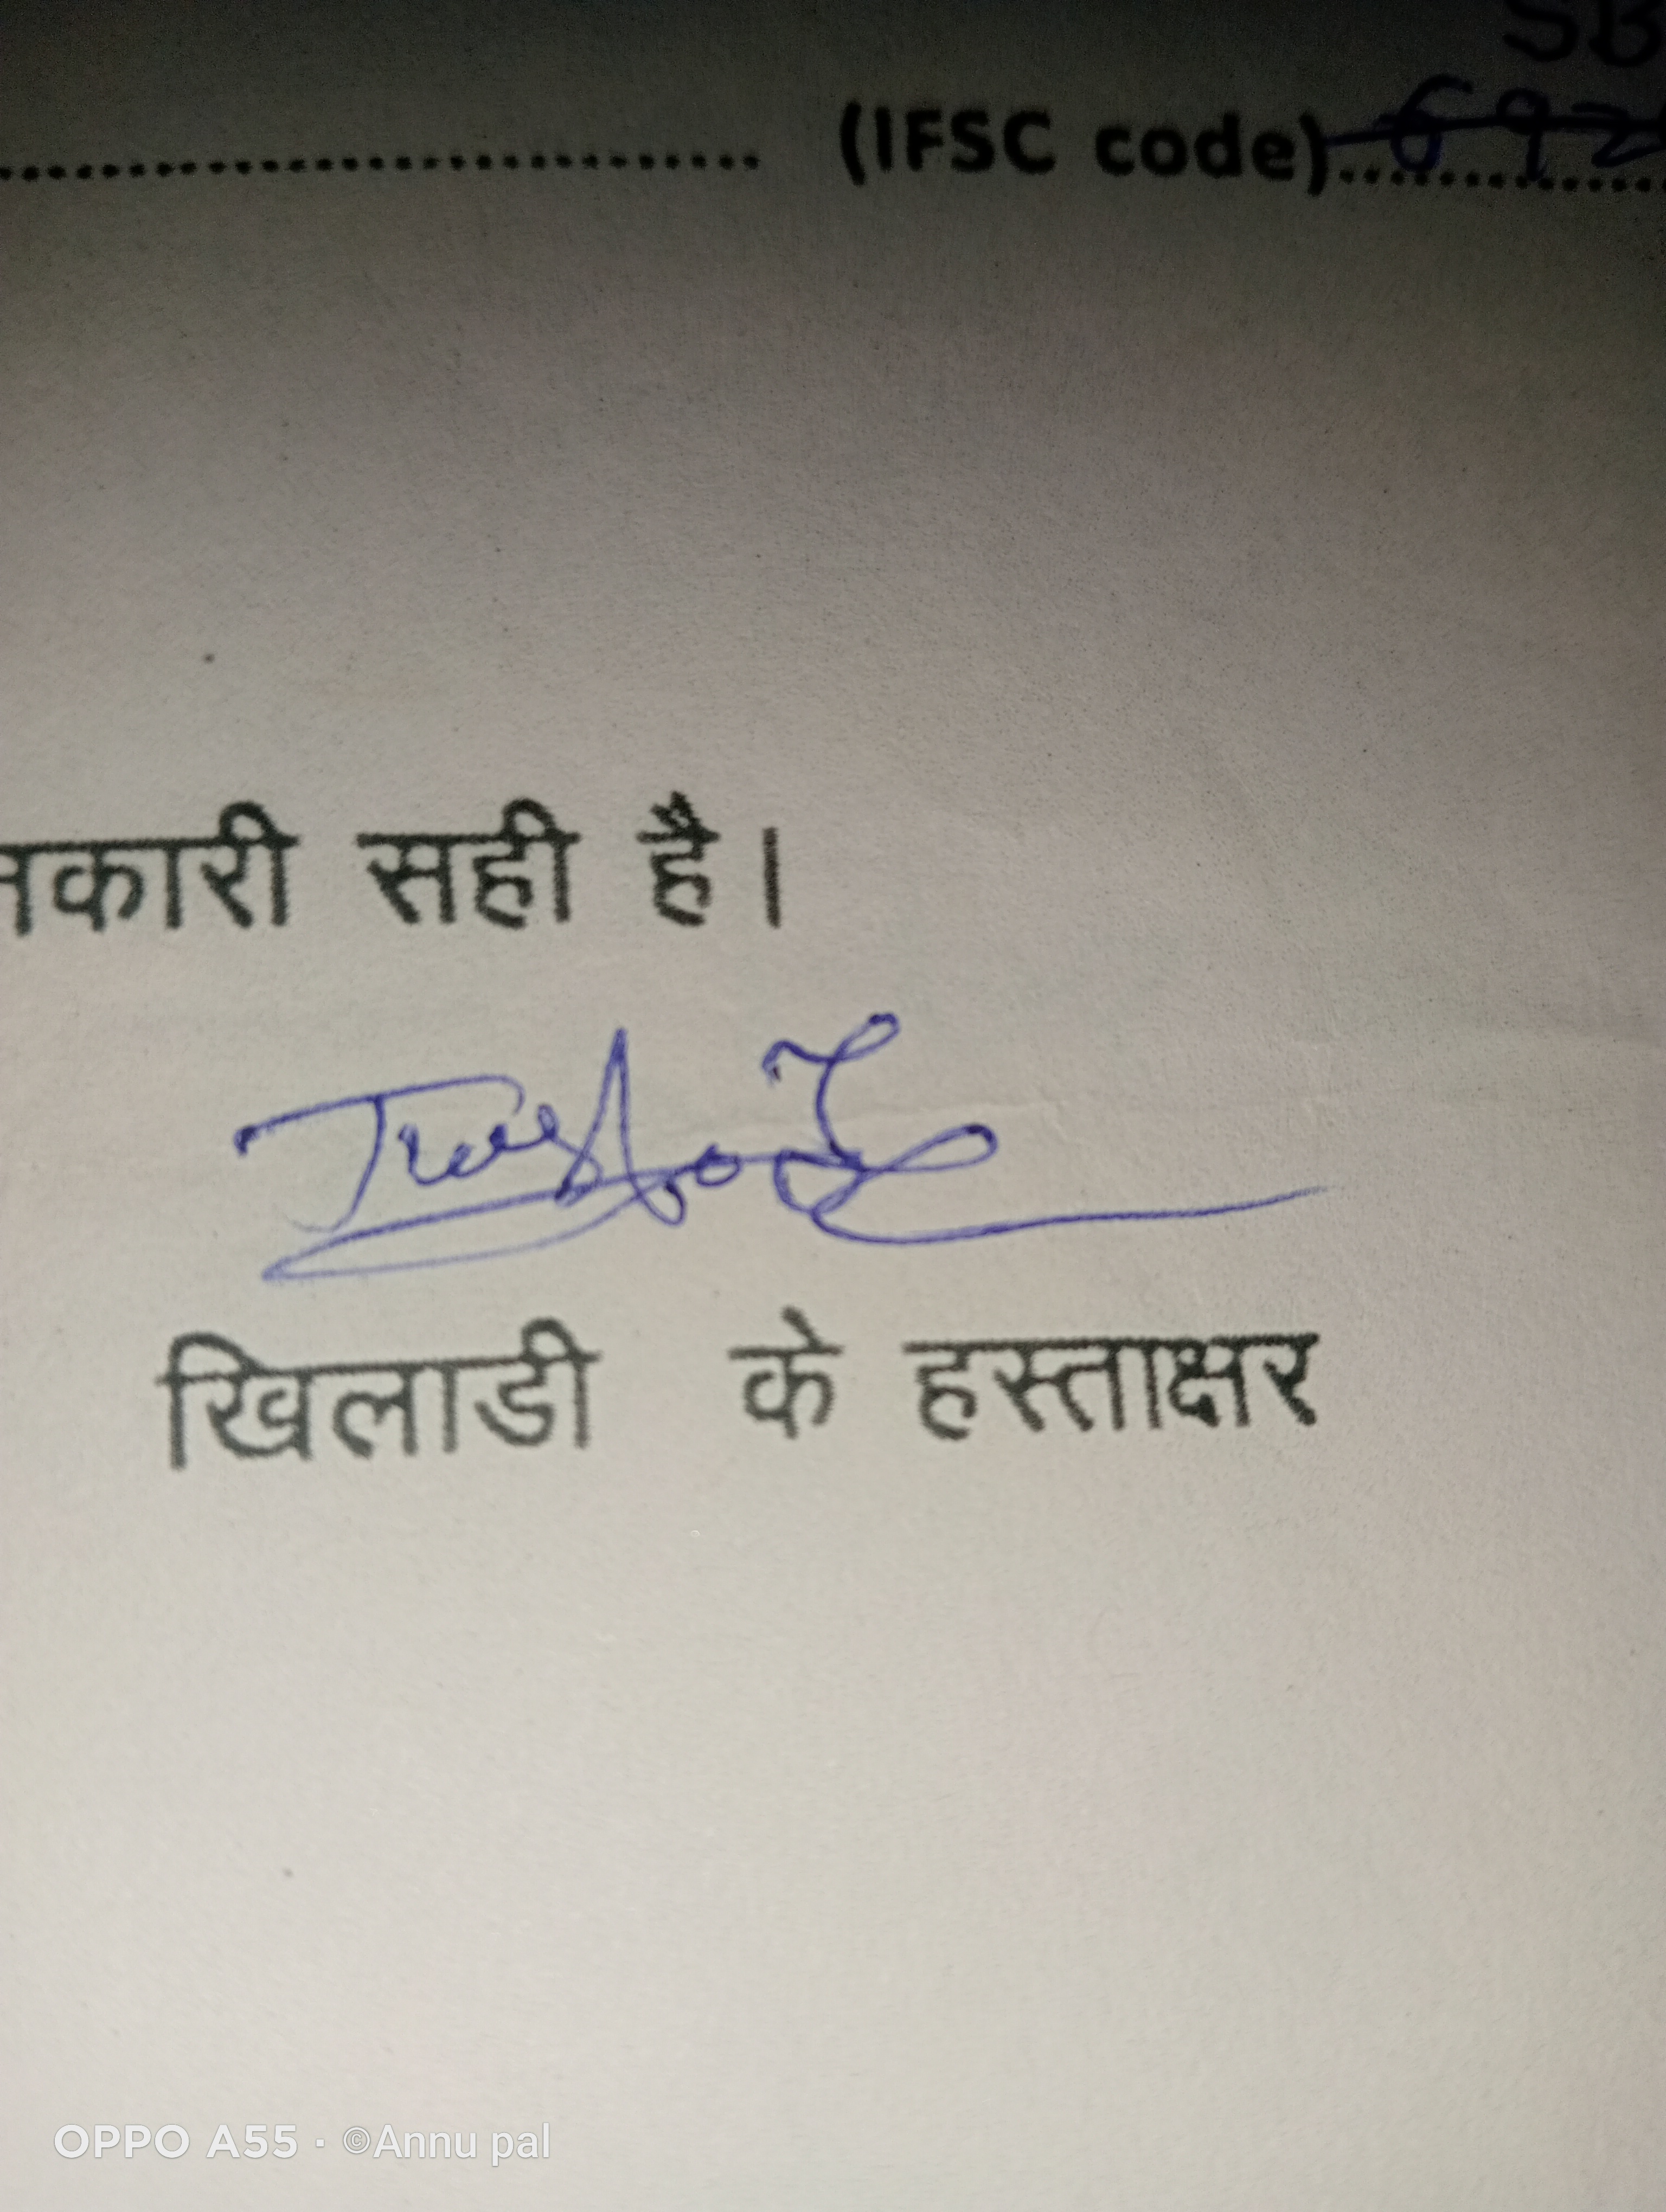 SB
(IFSC code) 692
नकारी सही है।
खिलाडी के हस्ताक्षर
OPPO A55 · ©Annu pal